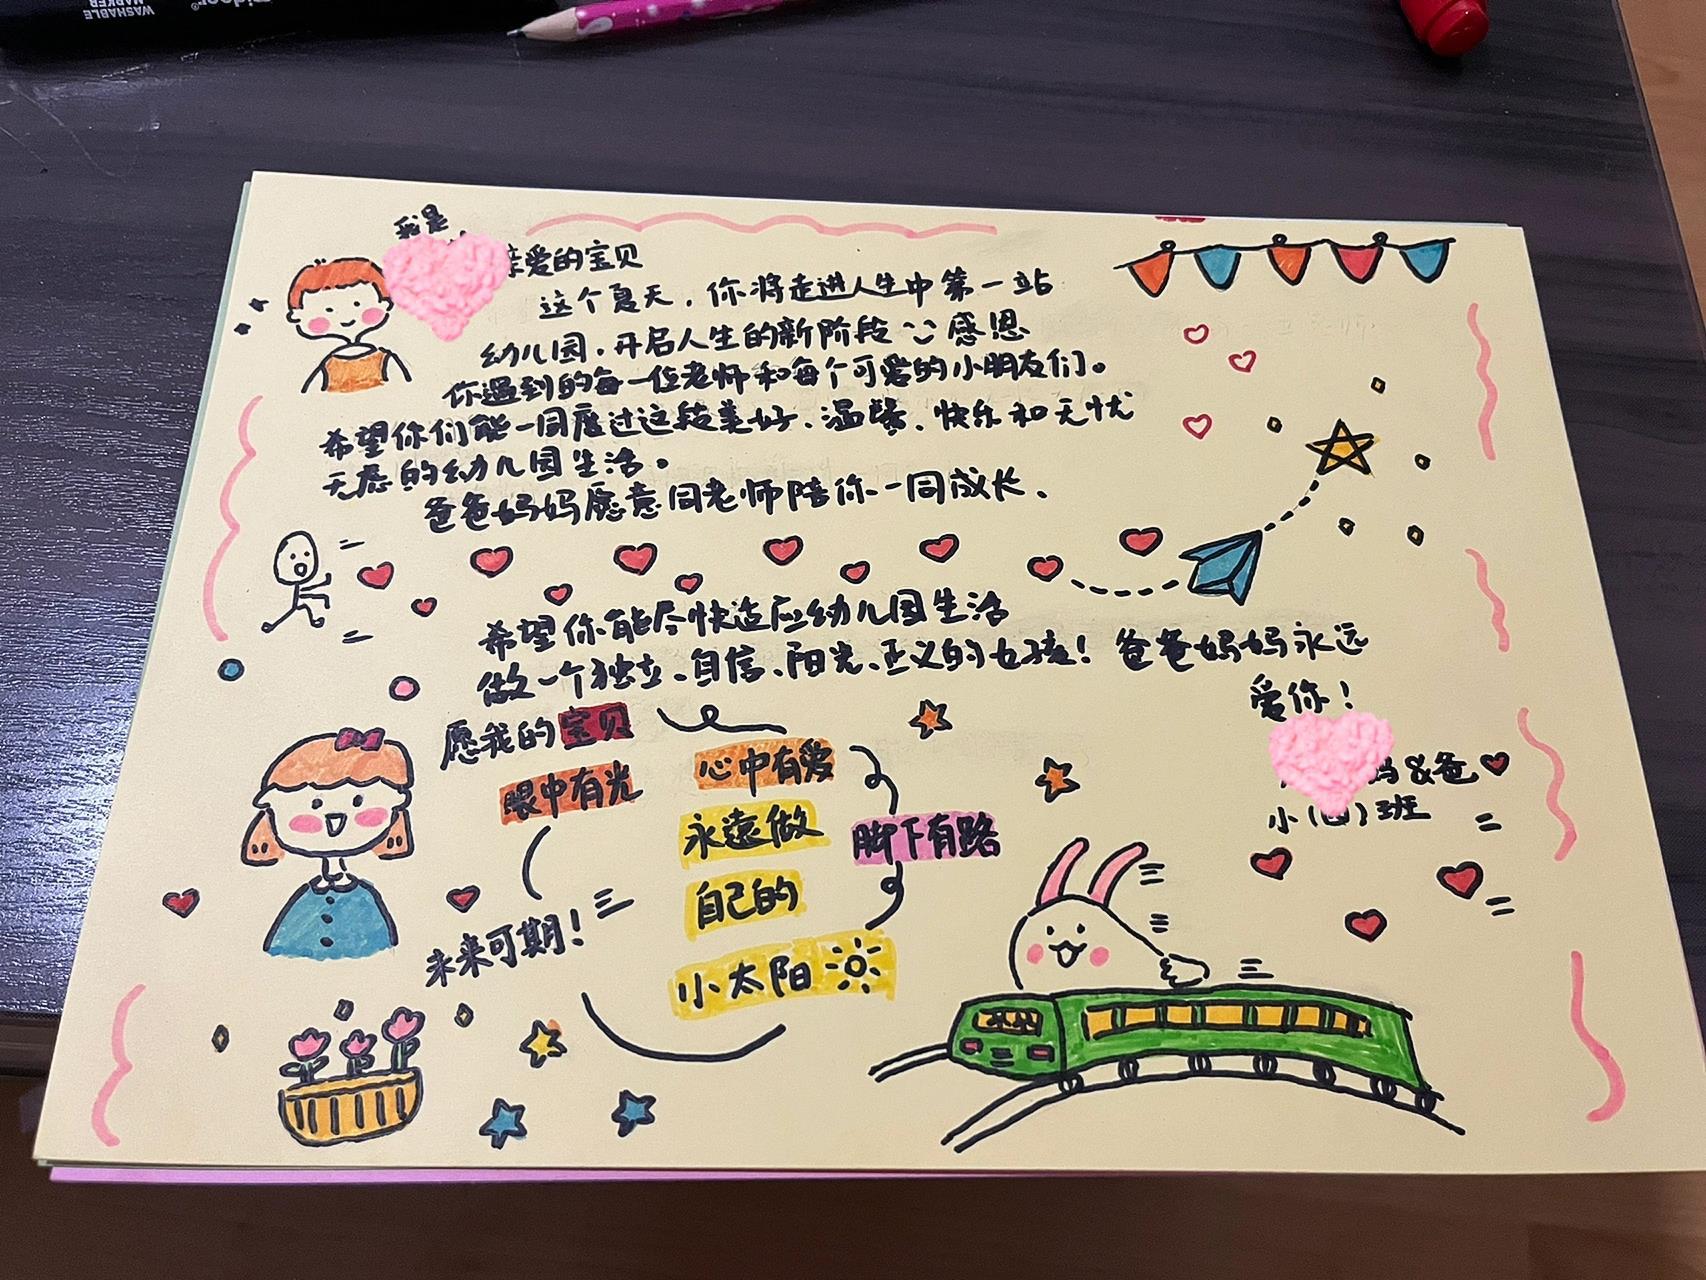 WASHABLE
MARKER
我是
亲爱的宝贝
这个夏天，你将走进人生中第一站
幼儿园，开启人生的新阶段 感恩
你遇到的每一位老师和每个可爱的小朋友们。
希望你们能一同度过这段美好、温馨、快乐和无忧
无虑的幼儿园生活。
爸爸妈妈愿意同老师陪你一同成长、
希望你能尽快适应幼儿园生活
做一个独立、自信、阳光、正义的女孩！爸爸妈妈永远
爱你！
妈&爸
小(四)班
愿我的宝贝
眼中有光
心中有爱
脚下有路
永遠做
自己的
小太阳
未来可期！